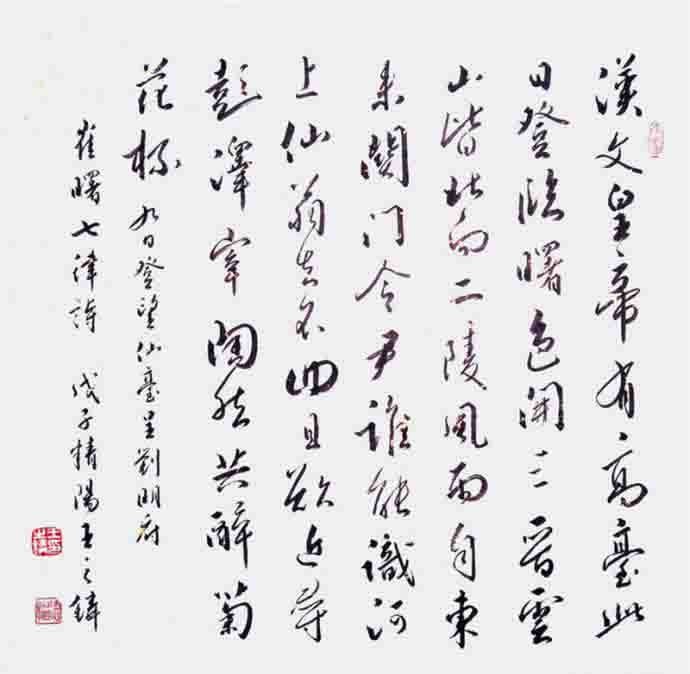 漢文皇帝有高臺此
日登臨曙色開三晉雲
山皆北向二陵風雨自東
来關門令尹誰能識河
上仙翁去不回且欲近尋
彭澤宰陶然共醉菊
花杯 九日登望仙臺呈劉明府
崔曙七律詩 戊子陽王之